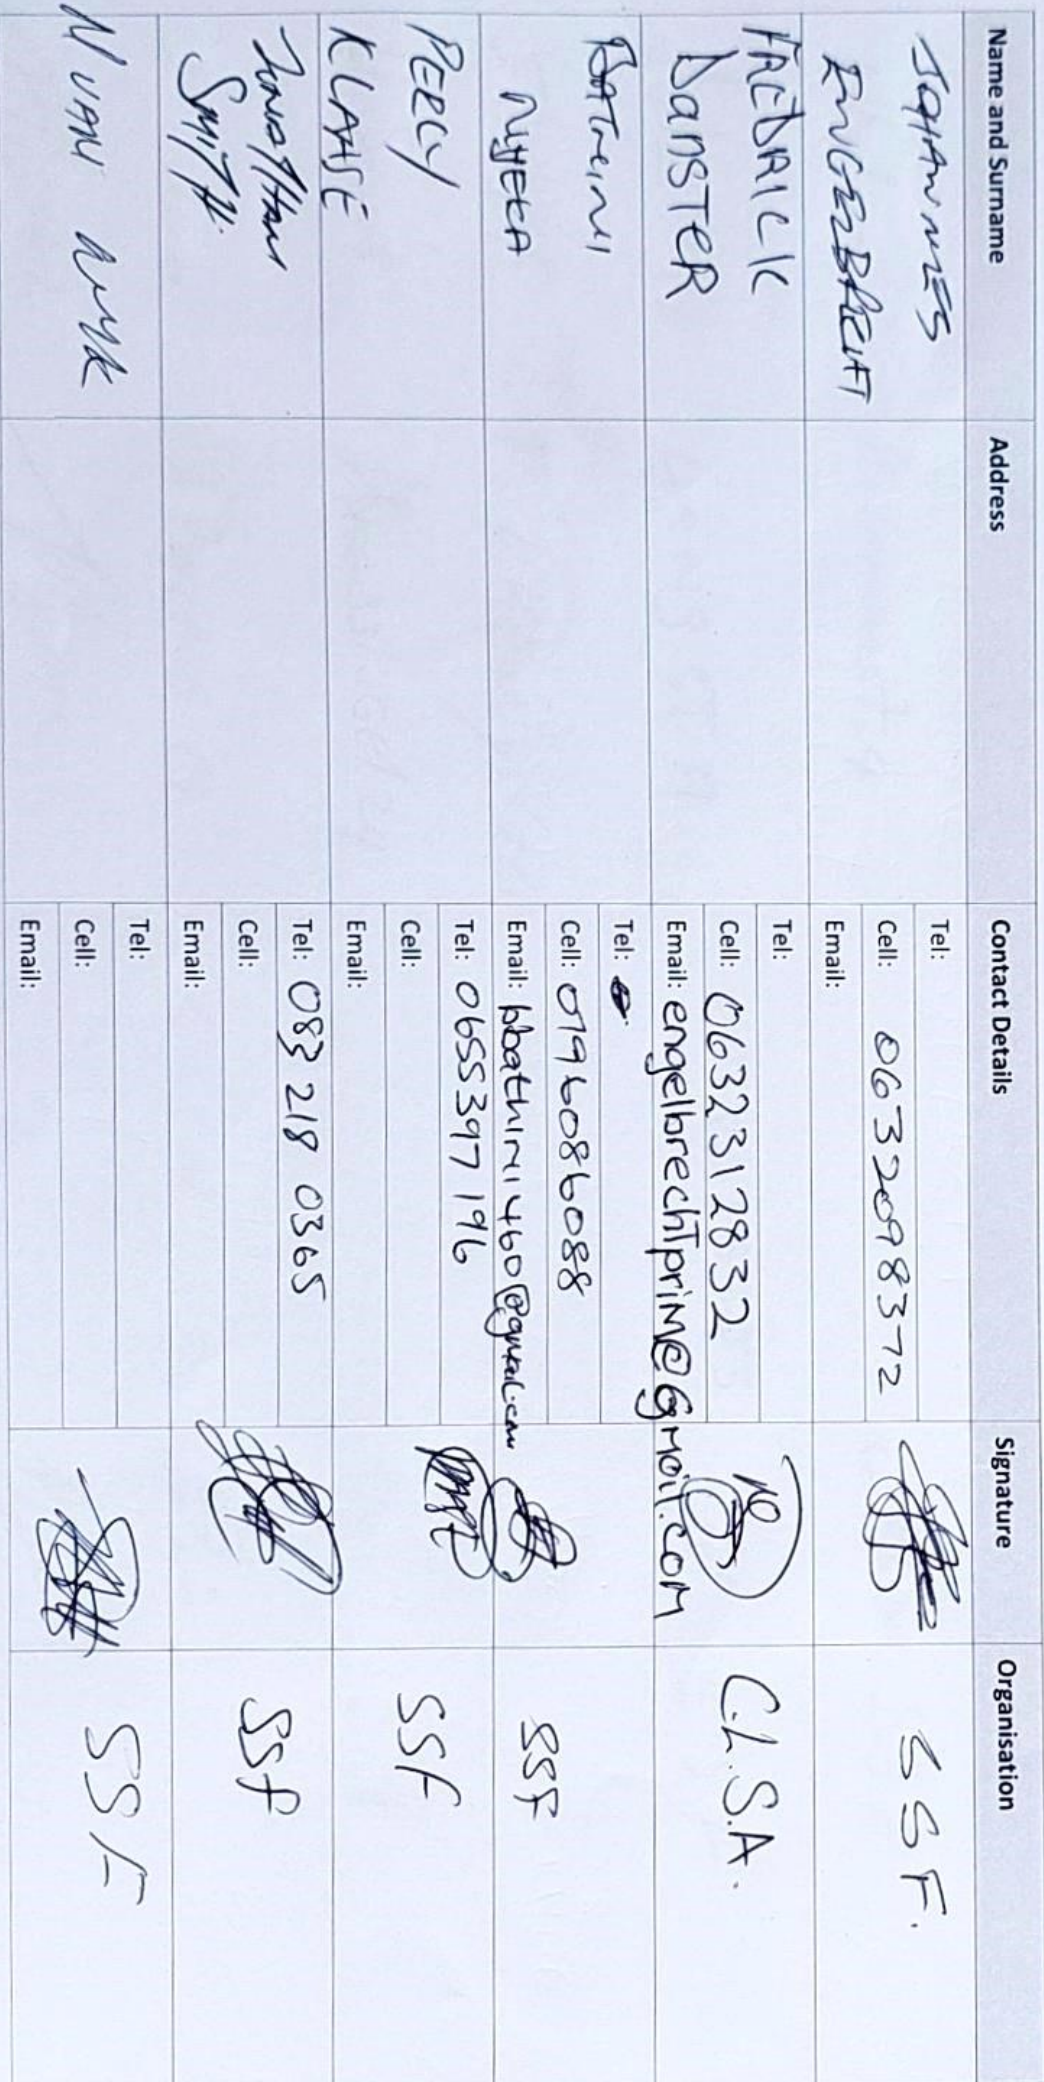 Name and Surname Address Contact Details Signature Organisation
JOHANNES
ENGELBRECHT
Tel:
Cell: 0632098372
Email:
SSF.
FREDRICK
DANSTER
Tel:
Cell: 0632312832
Email: engelbrechtprim@Gmail.com
C.L.S.A.
BATHINI
Tel:
Cell: 0796086088
Email: bbathini460@gmail.com
SSF
PERCY
KLAASE
Tel: 0655397196
Cell:
Email:
SSF
Jonathan
SMITH
Tel: 083 218 0365
Cell:
Email:
SSF
N VAN WYK
Tel:
Cell:
Email:
SSF